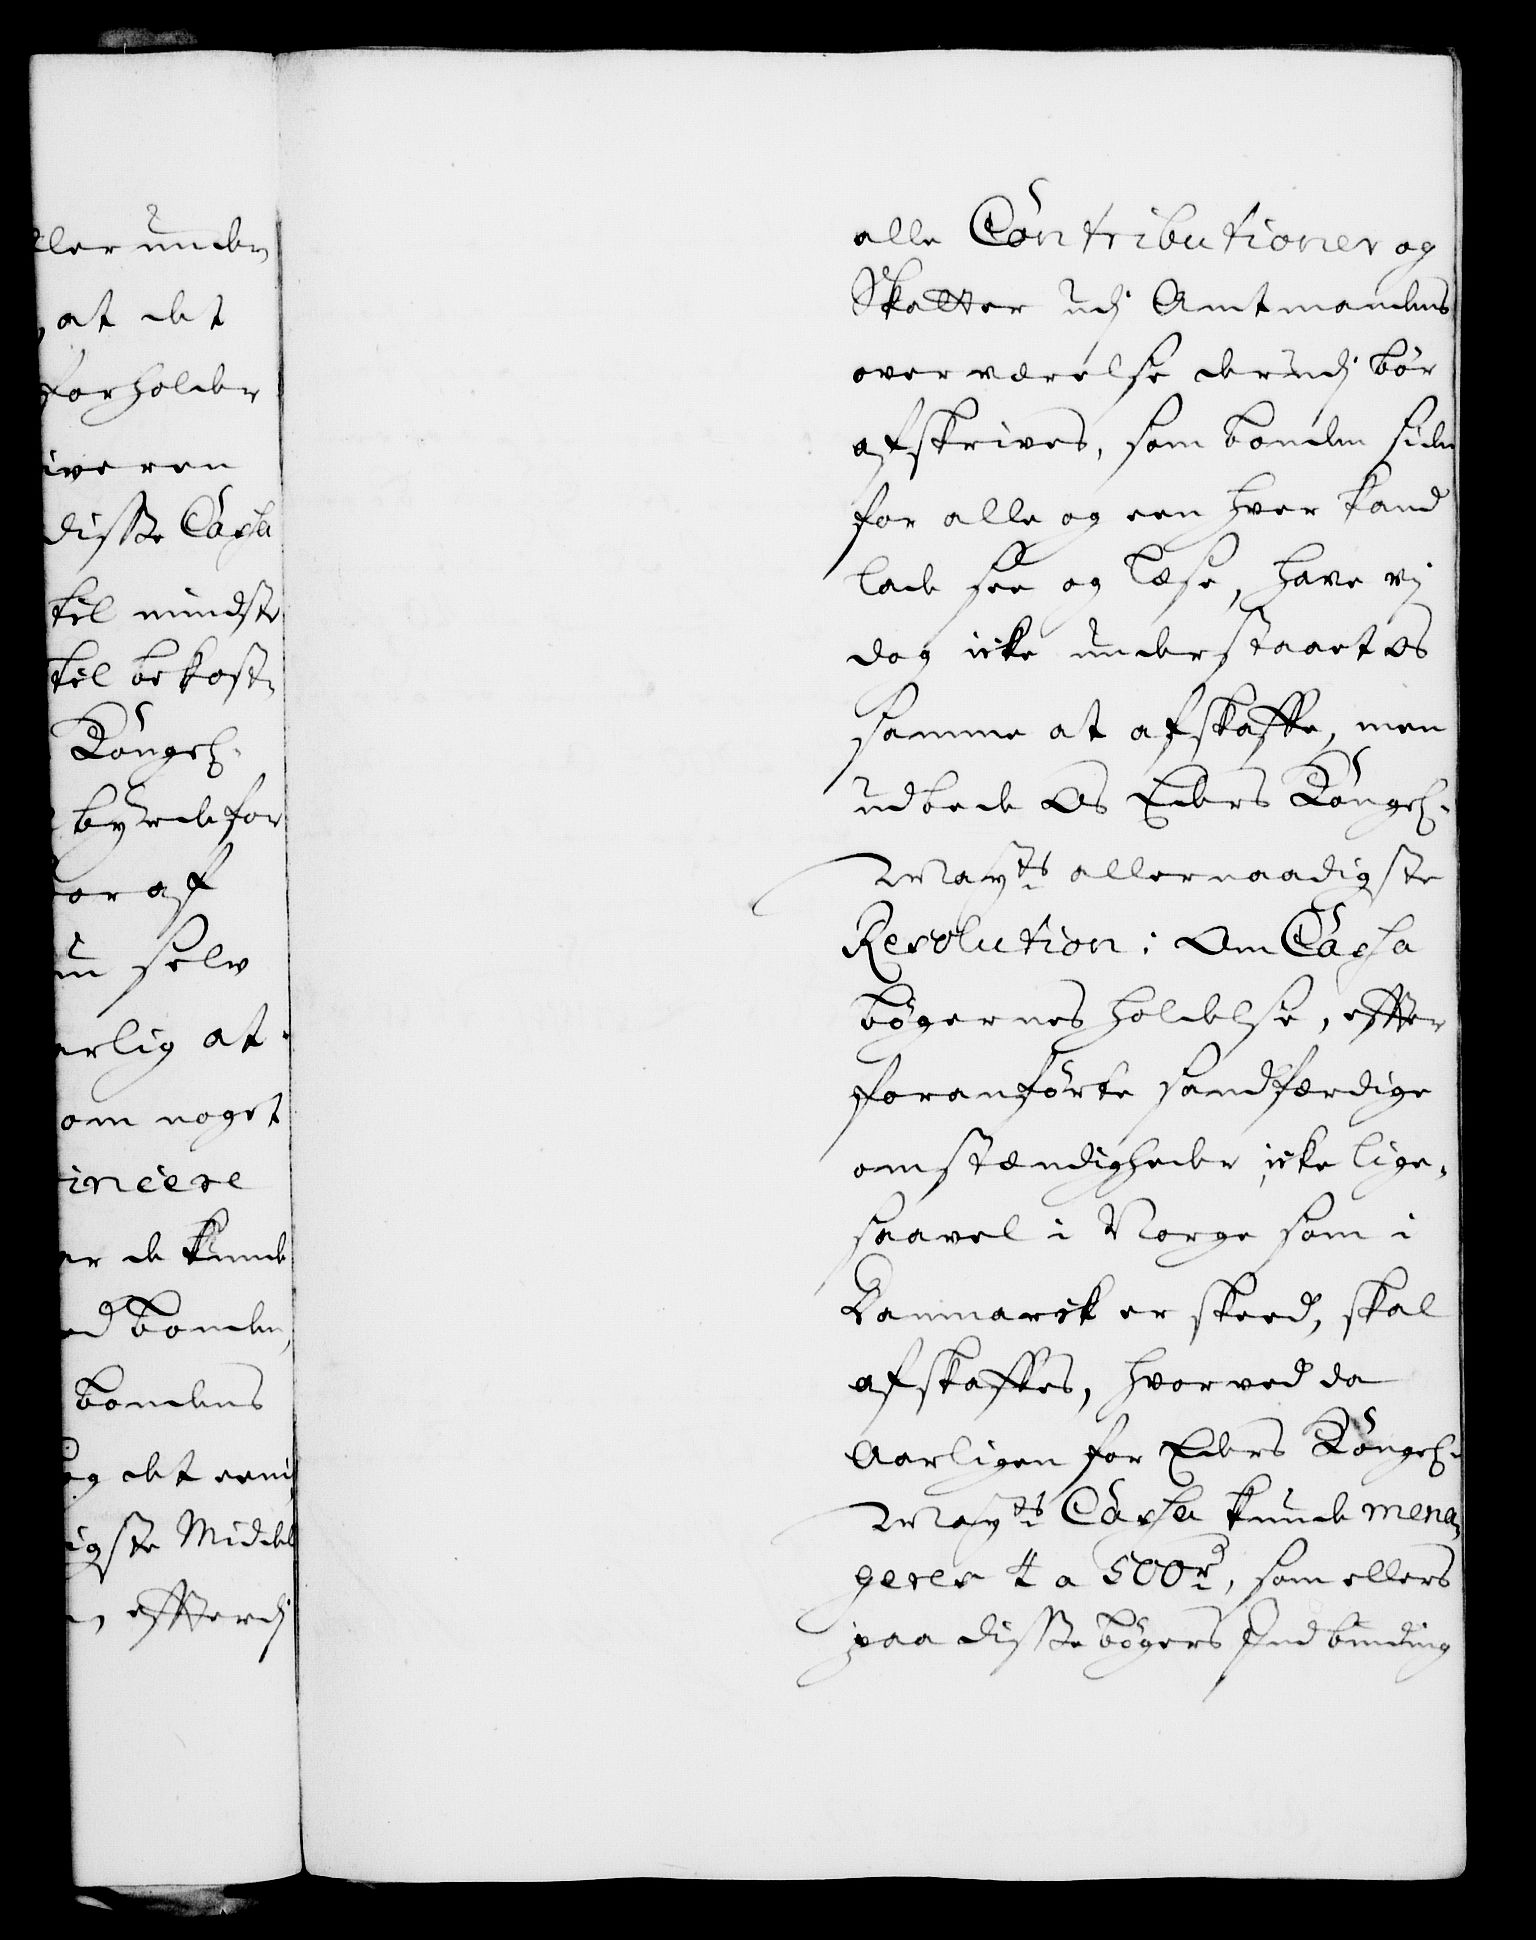 ller under
at det
forholder
iveren
disse Cassa
til mindste
til bekost-
Kongel.
byrde for
or af
selv
erlig at
om noget
incere
er de kunde
ed bonden,
bondens
og det eeni
igste Middel
efterdj
alle Contributioner og
Skatter udj Amtmandens
overværelse derudj bör
afskrives, som bonden siden
for alle og een hver kand
lade see og læse, have vj
dog icke understaaet os
samme at afskaffe, men
udbede os Eders Kongel.
Mayts allernaadigste
Resolution: Om Cassa
bögernes holdelse, efter
foranförte sandfærdige
omstændigheder, icke lige-
saavel i Norge som i
Danmarck er skeed, skal
afskaffes, hvorved da
Aarligen for Eders Kongel.
Mayts Cassa kunde mena-
geres 4 a 500 rd, som ellers
paa disse bögers Indbinding